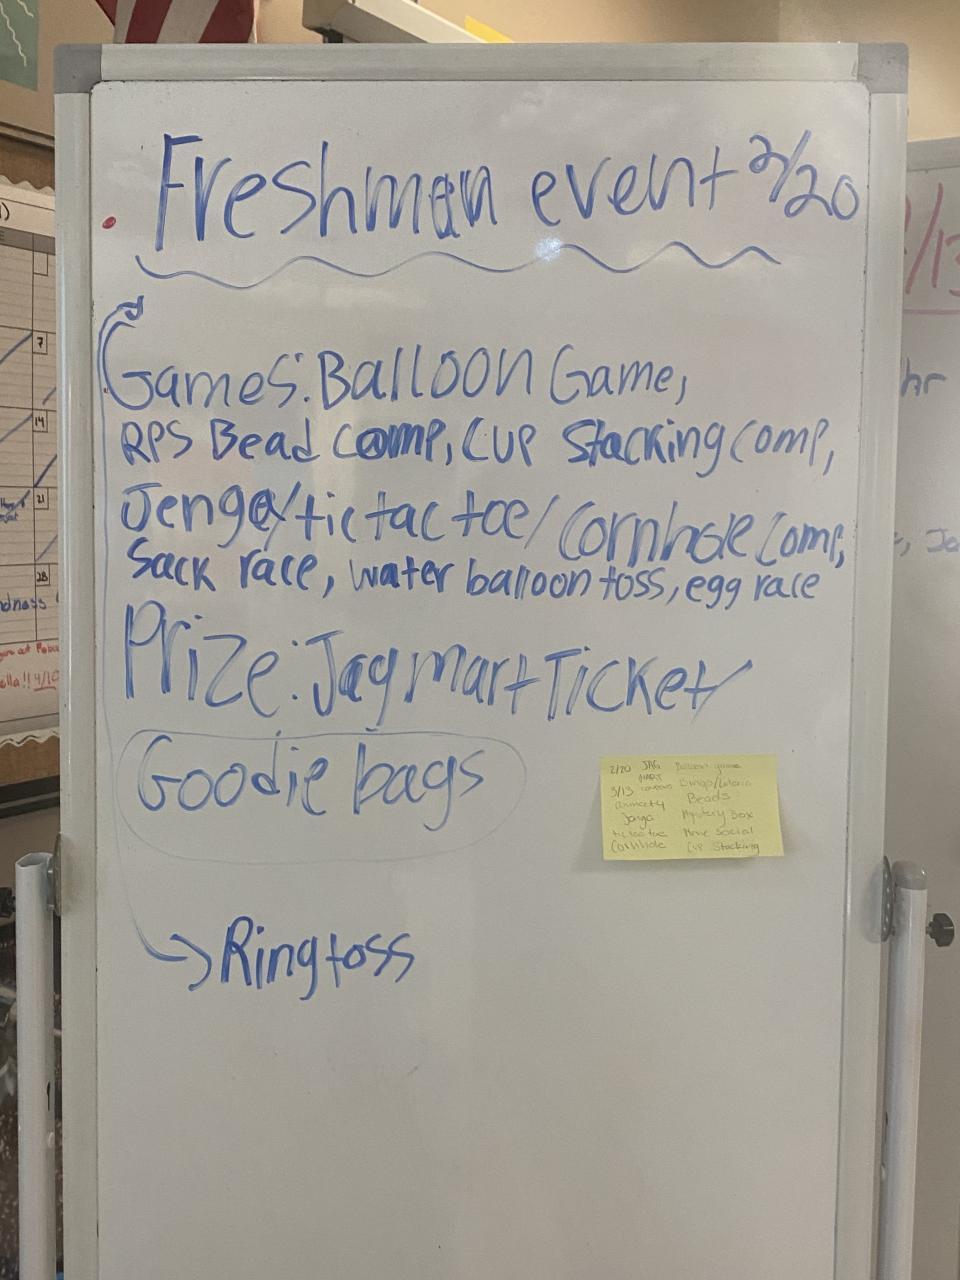 Freshman event 2/20
Games: Balloon Game,
RPS Bead comp, Cup Stacking comp,
Jenga/tic tac toe/Cornhole comp,
Sack race, water balloon toss, egg race
Prize: Jag mart Ticket
Goodie bags
→ Ring toss
2/20 JAG Balloon game
MART
3/13
Beads
Jenga Mystery Box
tic tac toe Movie Social
Cornhole Cup Stacking
/13
hr
7
14
21
28